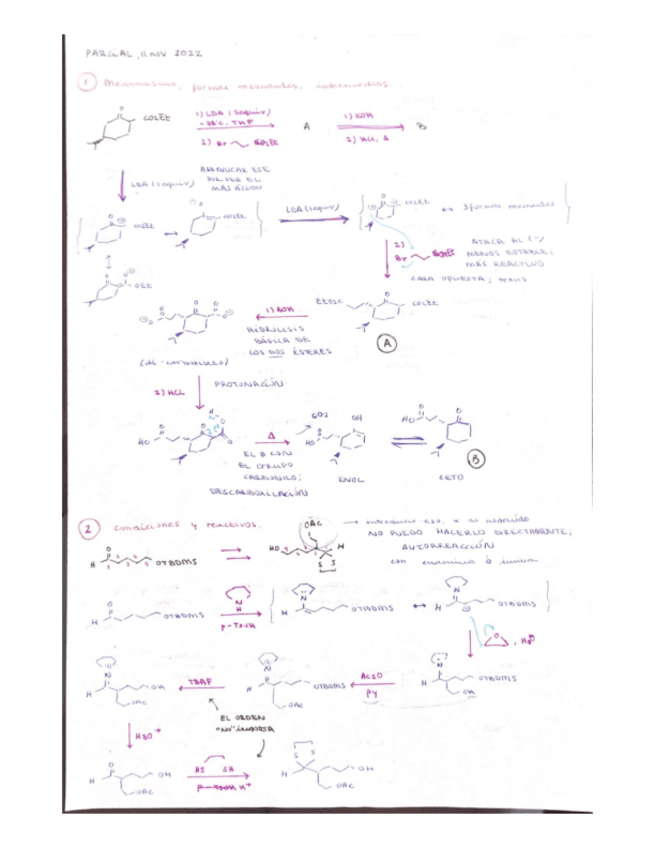 PARCIAL, 11 NOV 2022
1 Mecanismos, formas resonantes, intermedios.
CO2Et
1) LDA (2 equiv)
-78°C, THF
2) Br CO2Et
A
1) KOH
2) HCl, Δ
B
LDA (1 equiv)
ARRANCAR ESE
POR SER EL
MÁS ÁCIDO
LDA (1 equiv)
CO2Et
3 formas resonantes
OEt
2)
Br CO2Et
ATACA AL (-)
MENOS ESTABLE;
MÁS REACTIVO
CARA OPUESTA; trans
EtO2C
CO2Et
A
1) KOH
HIDRÓLISIS
BÁSICA DE
LOS DOS ÉSTERES
2) HCl
PROTONACIÓN
HO
Δ
EL β CON
EL GRUPO
CARBONILO;
DESCARBOXILACIÓN
CO2
OH
HO
ENOL
HO
CETO
B
2 condiciones y reactivos.
H OTBDMS
HO
OAc
H
S S
NO PUEDO HACERLO DIRECTAMENTE;
AUTORREACCIÓN
con enamina ó imina
H OTBDMS
N
H
p-TsOH
H OTBDMS
H OTBDMS
O, H2O
H OTBDMS
OH
Ac2O
py
H OTBDMS
OAc
TBAF
H OH
OAc
EL ORDEN
"NO" IMPORTA
H3O+
H OH
OAc
HS SH
p-TsOH H+
S S
H OH
OAc